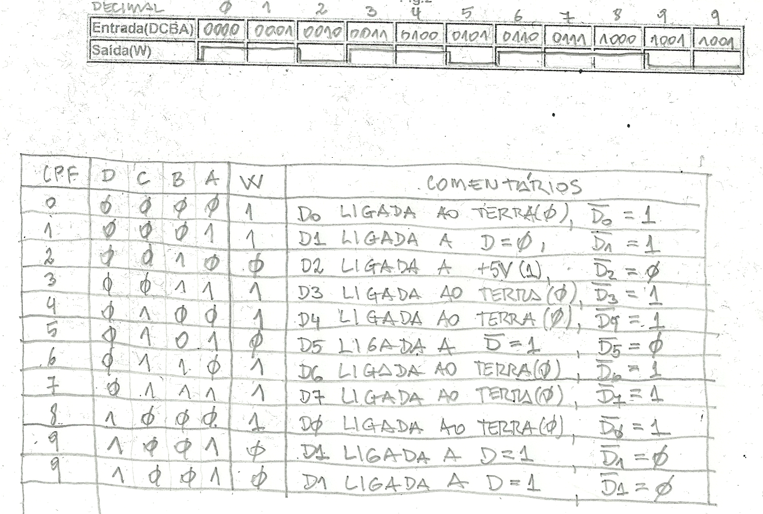 DECIMAL ø 1 2 3 4 5 6 7 8 9 9
Entrada(DCBA) 0000 0001 0010 0011 0100 0101 0110 0111 1000 1001 1001
Saída(W)
CPF D C B A W COMENTÁRIOS
0 ø ø ø ø 1 D0 LIGADA AO TERRA(ø), D̅0 = 1
1 ø ø ø 1 1 D1 LIGADA A D=ø, D̅1 = 1
2 ø ø 1 ø ø D2 LIGADA A +5V(1), D̅2 = ø
3 ø ø 1 1 1 D3 LIGADA AO TERRA(ø), D̅3 = 1
4 ø 1 ø ø 1 D4 LIGADA AO TERRA(ø), D̅4 = 1
5 ø 1 0 1 ø D5 LIGADA A D̅=1, D̅5 = ø
6 ø 1 1 ø 1 D6 LIGADA AO TERRA(ø), D̅6 = 1
7 ø 1 1 1 1 D7 LIGADA AO TERRA(ø), D̅7 = 1
8 1 ø ø ø 1 Dø LIGADA AO TERRA(ø), D̅ø = 1
9 1 ø ø 1 ø D1 LIGADA A D=1, D̅1 = ø
9 1 ø ø 1 ø D1 LIGADA A D=1, D̅1 = ø